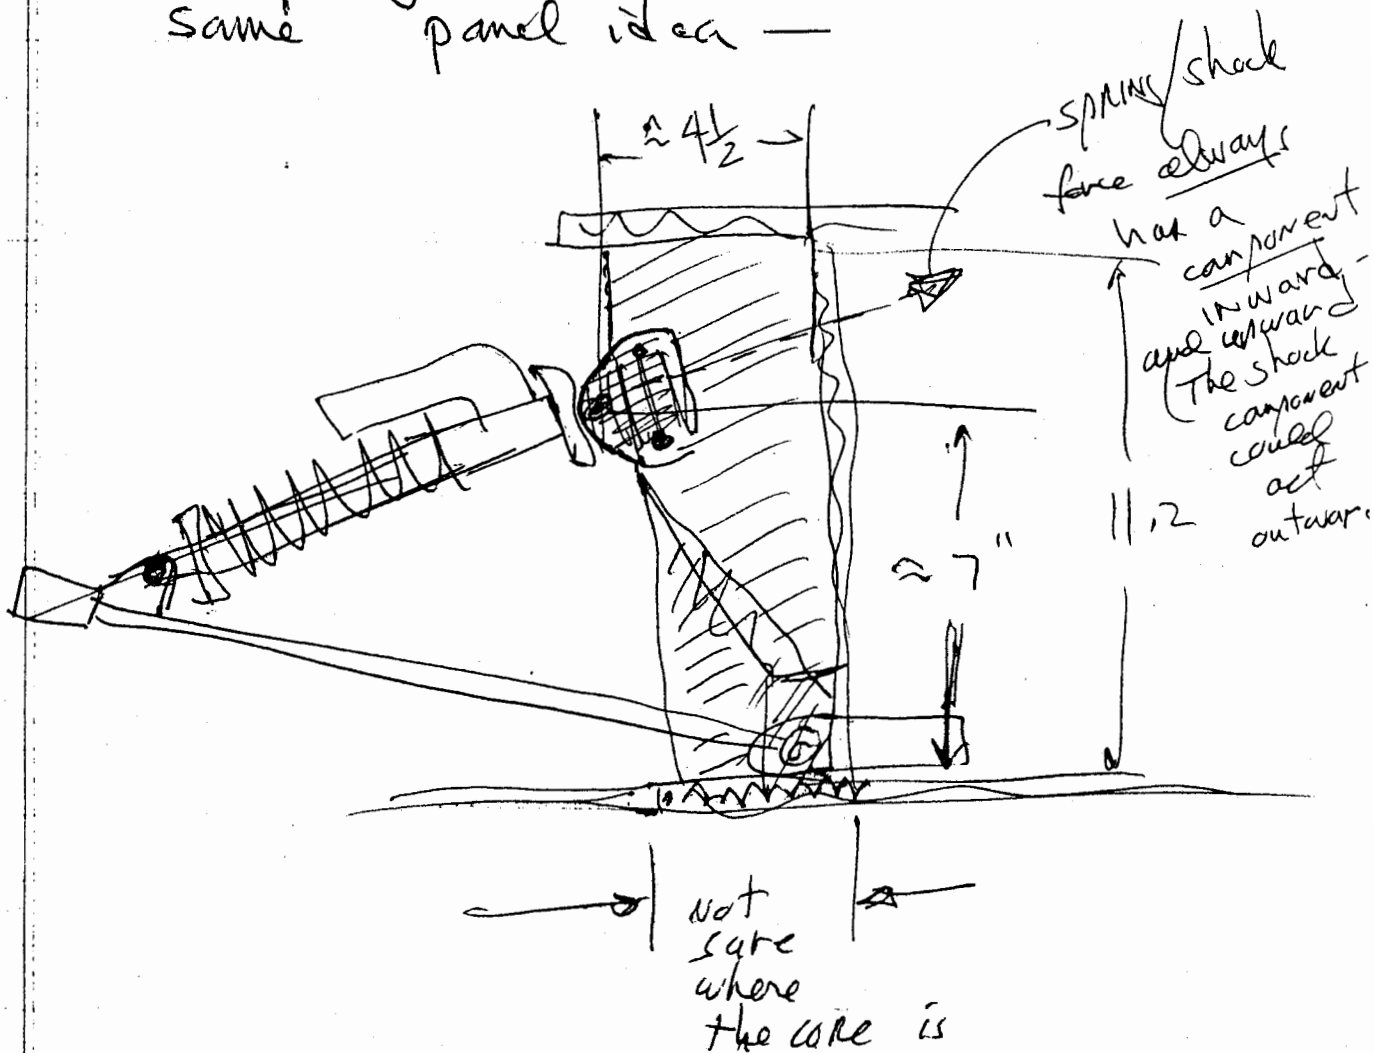 same panel idea —
≈ 4½
SPRING/shock
force always
has a
component
INWARD
and upward
(The shock
component
could
act
outwar.
≈ 7"
11.2
Not
sure
where
the core is